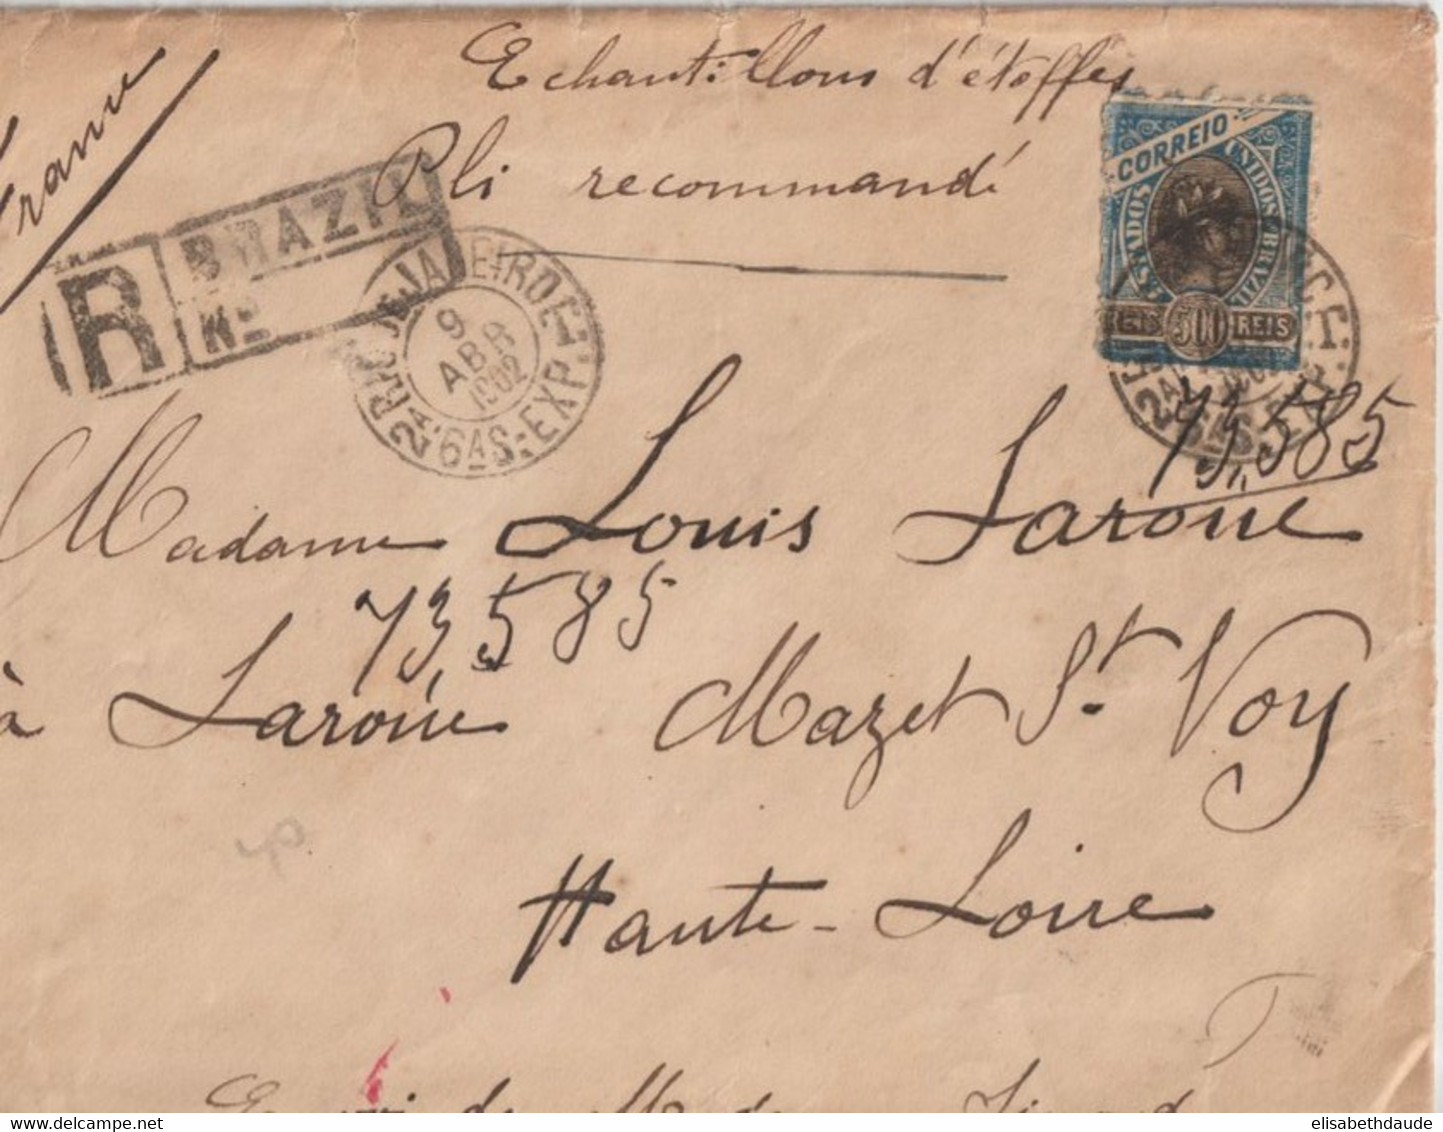 Echantillons d'étoffes
France
Pli recommandé
CORREIO
ESTADOS UNIDOS BRAZIL
500 REIS
R BRAZIL
Nº
RIO DE JANEIRO
9
ABR
1902
2A. 6AS. EXP.
73,585
Madame Louis Laroue
73,585
à Laroue Mazet St Voy
Haute-Loire
elisabethdaude